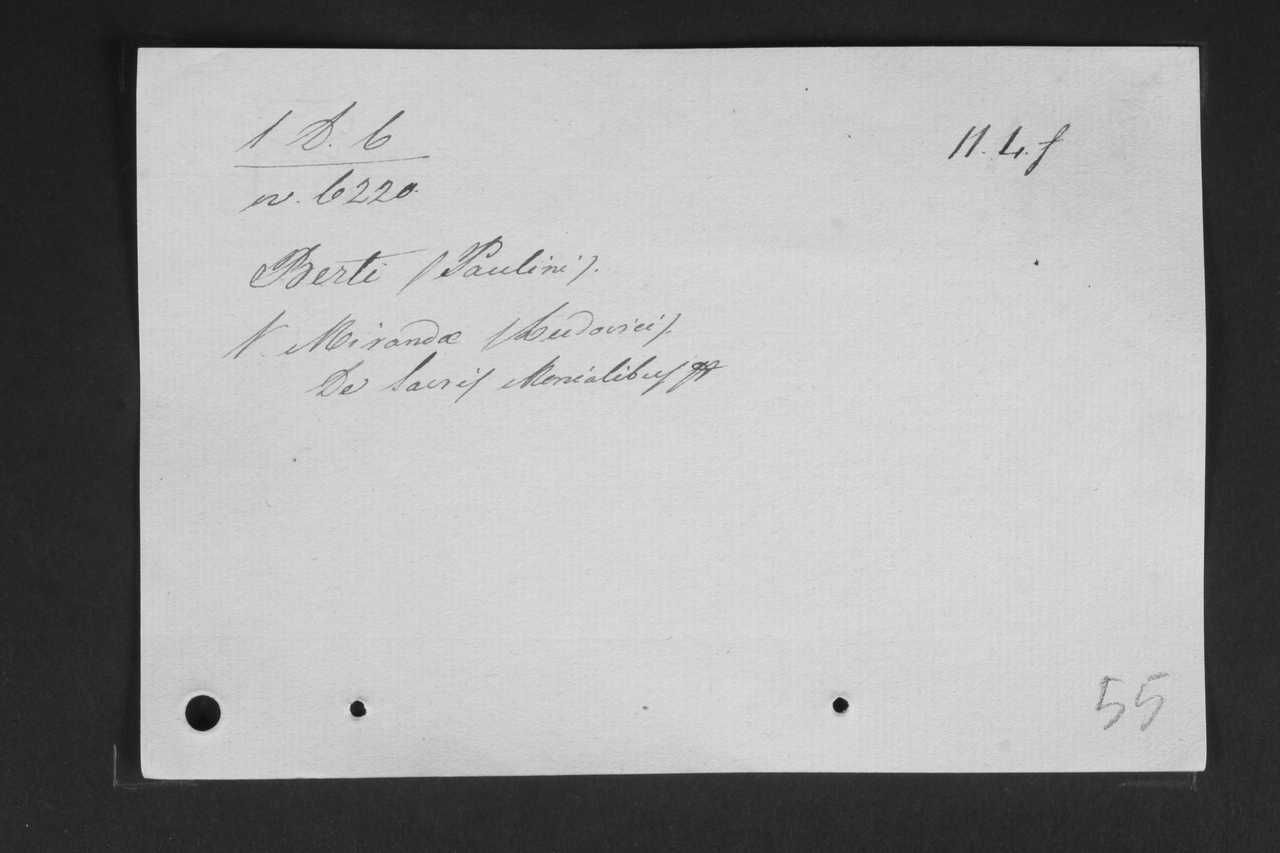 1 D. 6
11. 4. f
n. 6220.
Berti (Paulini).
V. Mirandæ (Ludovici).
De Sacris Monialibus
55